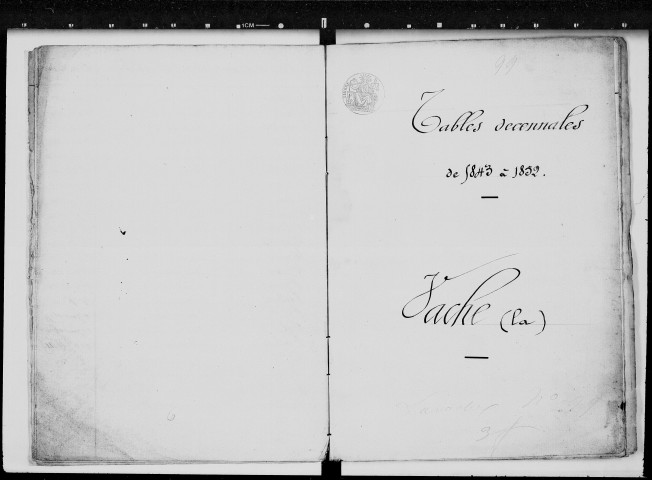 Tables decennales
de 1843 à 1852.
Vache (la)